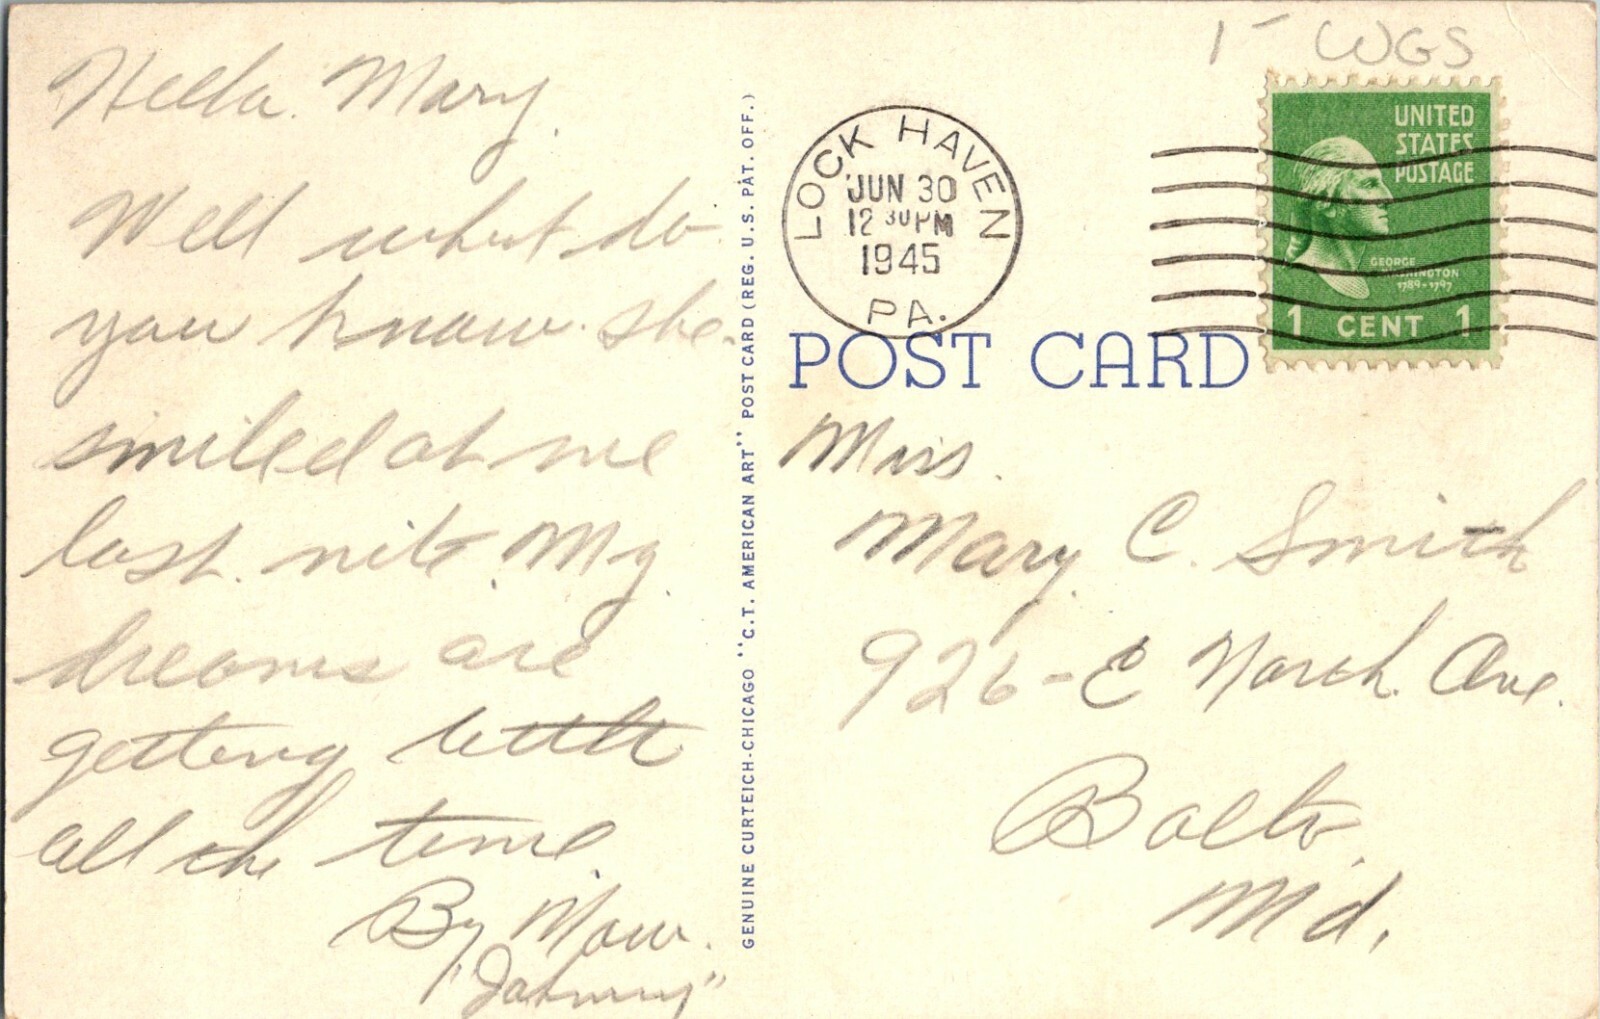 Hello. Mary.
Well what do
you know. she.
smiled at me
last. nite. My
dreams are
getting better
all the time.
By Now.
"Johnny"
GENUINE CURTEICH-CHICAGO "C.T. AMERICAN ART" POST CARD (REG. U.S. PAT. OFF.)
1- WGS
LOCK HAVEN
JUN 30
12 30 PM
1945
PA.
UNITED
STATES
POSTAGE
GEORGE
WASHINGTON
1789-1797
1 CENT 1
POST CARD
Miss.
Mary C. Smith
926-E North. Ave.
Balto.
Md.